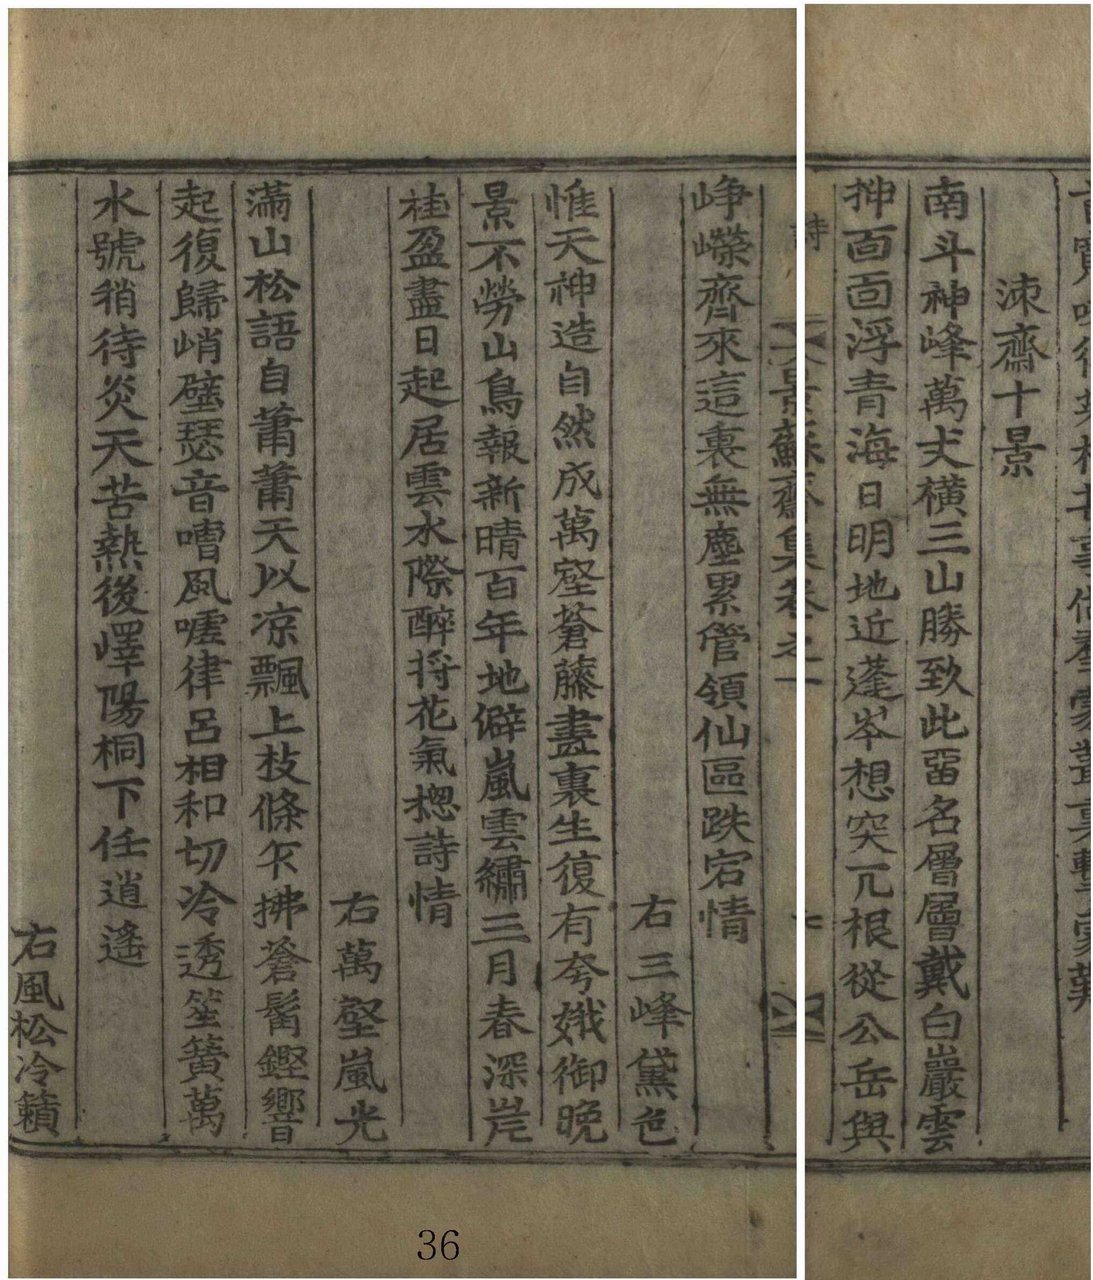 涑齋十景
南斗神峰萬丈橫三山勝致此畱名層層戴白巖雲
抻面面浮青海日明地近蓬岑想突兀根從公岳與
詩
景蘇齋集卷之一
崢嶸齊來這裏無塵累管領仙區跌宕情
右三峰黛色
惟天神造自然成萬壑蒼藤畫裏生復有夸娥御晚
景不勞山鳥報新晴百年地僻嵐雲繡三月春深芷
桂盈盡日起居雲水際醉將花氣摠詩情
右萬壑嵐光
滿山松語自蕭蕭天以凉飄上枝條乍拂蒼髥鏗響
起復歸峭壁瑟音嘈風噓律呂相和切冷透笙簧萬
水號稍待炎天苦熱後嶧陽桐下任逍遙
右風松冷籟
36